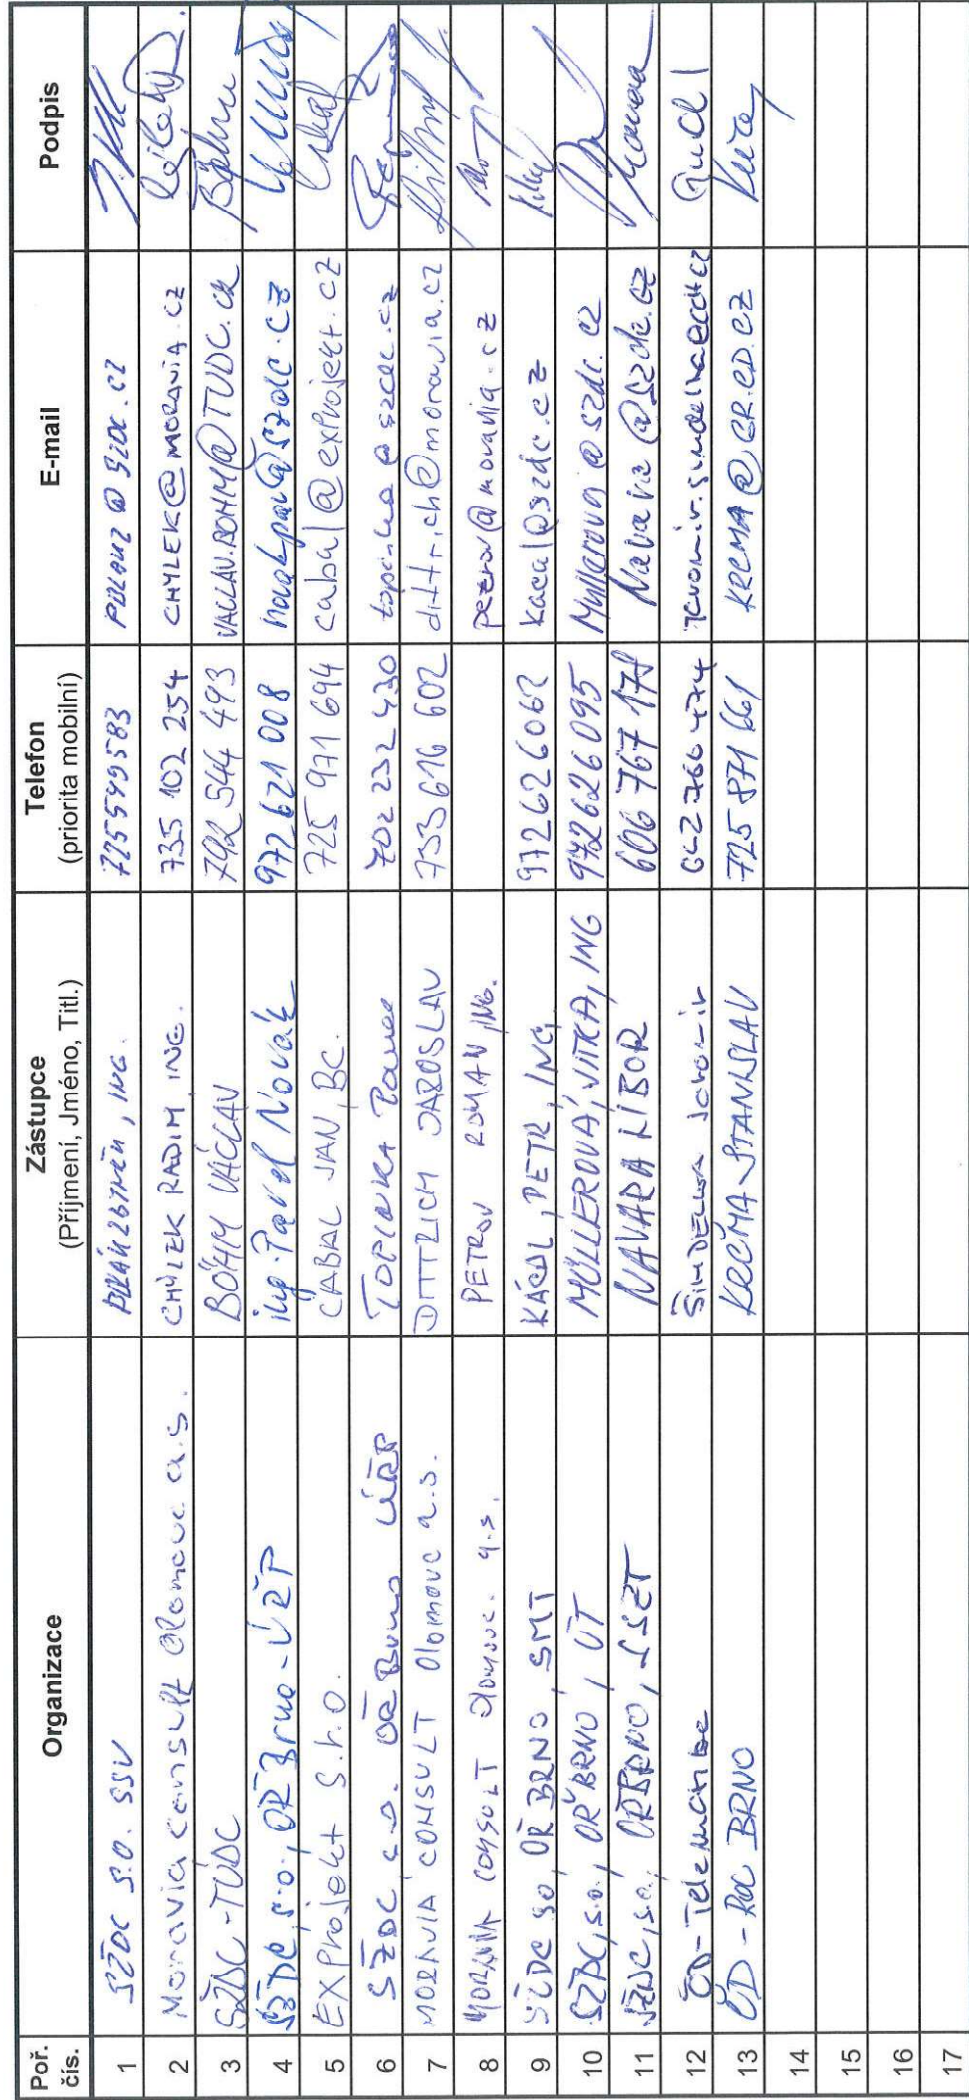 Poř. čís. Organizace Zástupce (Příjmení, Jméno, Titl.) Telefon (priorita mobilní) E-mail Podpis
1 SŽDC s.o. SSV ING. 725599583
2 Moravia consult Olomouc a.s. CHÝLEK RADIM ING. 735 102 254 CHYLEK@MORAVIA.CZ
3 SŽDC-TÚDC BÖHM VÁCLAV 792 544 493 VACLAV.BOHM@TUDC.CZ Böhm
4 SŽDC, s.o., OŘ Brno - ÚŘP ing. Pavel Novák 972 621 008 novakpav@szdc.cz
5 EXProjekt s.r.o. CABAL JAN, BC. 725 971 694 cabal@exprojekt.cz
6 SŽDC s.o. OŘ Brno ÚŘP TOPINKA 702 232 430
7 MORAVIA CONSULT Olomouc a.s. DITTRICH JAROSLAV 733 616 602 dittrich@moravia.cz
8 MORAVIA CONSULT Olomouc a.s. PETROV ROMAN, ING. petrov@moravia.cz
9 SŽDC so, OŘ BRNO, SMT KÁCAL, PETR, ING. 972626062 kacal@szdc.cz
10 SŽDC, s.o., OŘ BRNO, ÚT MÜLLEROVÁ, VITKA, ING 972626095 Mullerova@szdc.cz
11 SŽDC, s.o., OŘ BRNO, SSZT NAVARA LIBOR 606 767 178 Navara@szdc.cz
12 ČD-Telematika ŠINDELKA Jaromír
13 ČD - BRNO KRČMA STANISLAV 725 871 661 KRCMA@GR.CD.CZ
14
15
16
17